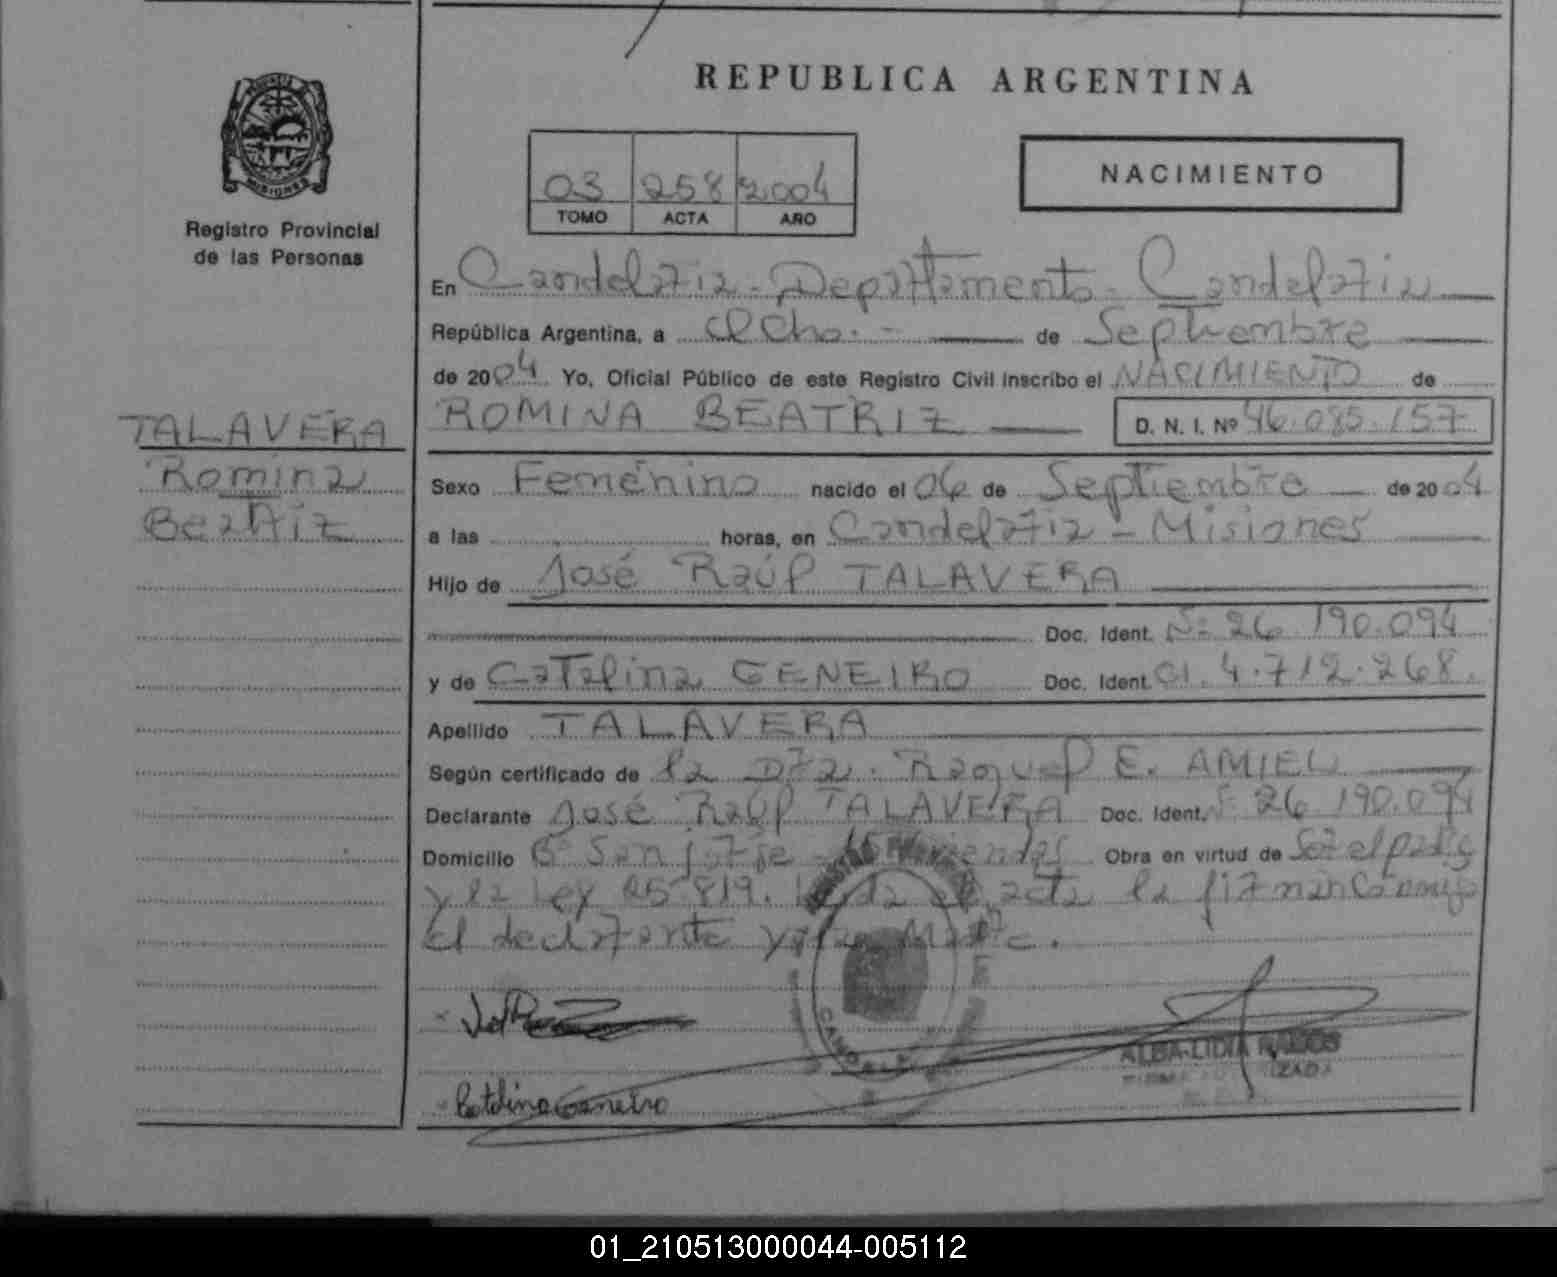 REPUBLICA ARGENTINA
MISIONES
Registro Provincial
de las Personas
03 258 2004
TOMO ACTA AÑO
NACIMIENTO
En Candelaria - Departamento - Candelaria
República Argentina, a Ocho.- de Septiembre
de 2004 Yo, Oficial Público de este Registro Civil inscribo el NACIMIENTO de
ROMINA BEATRIZ D. N. I. Nº 46.085.157
TALAVERA
Romina
Beatriz
Sexo Femenino nacido el 06 de Septiembre de 2004
a las horas, en Candelaria - Misiones
Hijo de José Raúl TALAVERA
Doc. Ident. Nº 26.190.094
y de Catalina GENEIRO Doc. Ident. CI. 4.712.268.
Apellido TALAVERA
Según certificado de la Dra. Raquel E. AMIEL
Declarante José Raúl TALAVERA Doc. Ident. Nº 26.190.094
Domicilio Bº San Jorge - Viviendas Obra en virtud de
y la Ley 25.819. acta la firman conmigo
el declarante y la Madre.
Catalina Geneiro
ALBA LIDIA RAMOS
FIRMA AUTORIZADA
01_210513000044-005112